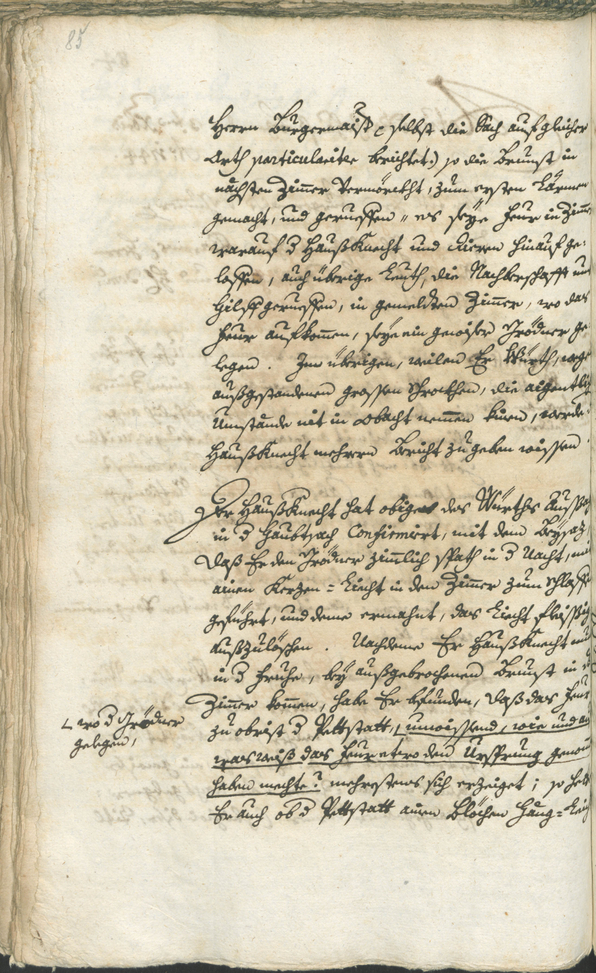 85
Herrn Burgermaistr selbst die Sach auf gleiche
Arth particulariter berichtet:) so die Brunst in
nächsten Zimmer vermörckht, zum ersten Lärmen
gemacht, und geruessen, es seye Feur in Zimer
warauf d Haußknecht und dieren hinauf ge-
loffen, auch übrige Leuth, die Nachberschafft und
hilff geruessen, in gemeldten Zimmer, wo das
Feur aufkommen, seye ein gewiser Grödner ge-
legen. Im übrigen, weilen Er Würth, wegen
außgestandenen grossen Schrockhen, die aigentliche
Umstände nit in obacht nemmen kinen, werde
Haußknecht mehrern Bericht zu geben wissen
Der Haußknecht hat obiges des Würths Aussag
in d Haubtsach Confirmirt, mit dem Beysaz
daß Er den Grödner zimmlich spath in d Nacht, mit
ainen Kerzen=Liecht in dem Zimmer zum schlaffen
geführt, und deme ermahnt, das Liecht fleissig
außzulöschen. Nachdeme Er Haußknecht nun
in d Fruehe, bey außgebrochenen Brunst in d
Zimmer kommen, habe Er befunden, daß das Feur
wo d Grödner
gelegen,
zu obrist d Pettstatt, unwissend, wie und auf
was weiß das Feur etwo den Ursprung genomen
haben mechte? mehrestens sich erzeiget; so habe
Er auch ob d Pettstatt ainen Blöchen Häng=Leich